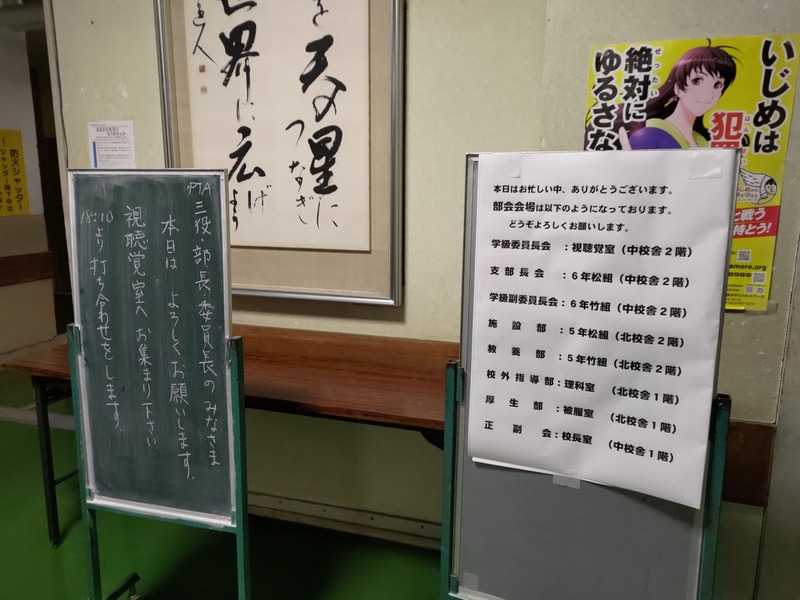 PTA三役・部長・委員長のみなさま
本日は よろしくお願いします。
視聴覚室へ お集まり下さい。
18:10より 打ち合わせをします。
天の星に
つなぎ
世界に広げ
本日はお忙しい中、ありがとうございます。
部会会場は以下のようになっております。
どうぞよろしくお願いします。
学級委員長会 :視聴覚室(中校舎2階)
支部長会 :6年松組(中校舎2階)
学級副委員長会:6年竹組(中校舎2階)
施設部 :5年松組(北校舎2階)
教養部 :5年竹組(北校舎2階)
校外指導部:理科室 (北校舎1階)
厚生部 :被服室 (北校舎1階)
正副会:校長室 (中校舎1階)
いじめは
犯
絶対に
ぜったい
ゆるさな
と戦う
持とう!
防火シャッター
シャッター降下中は